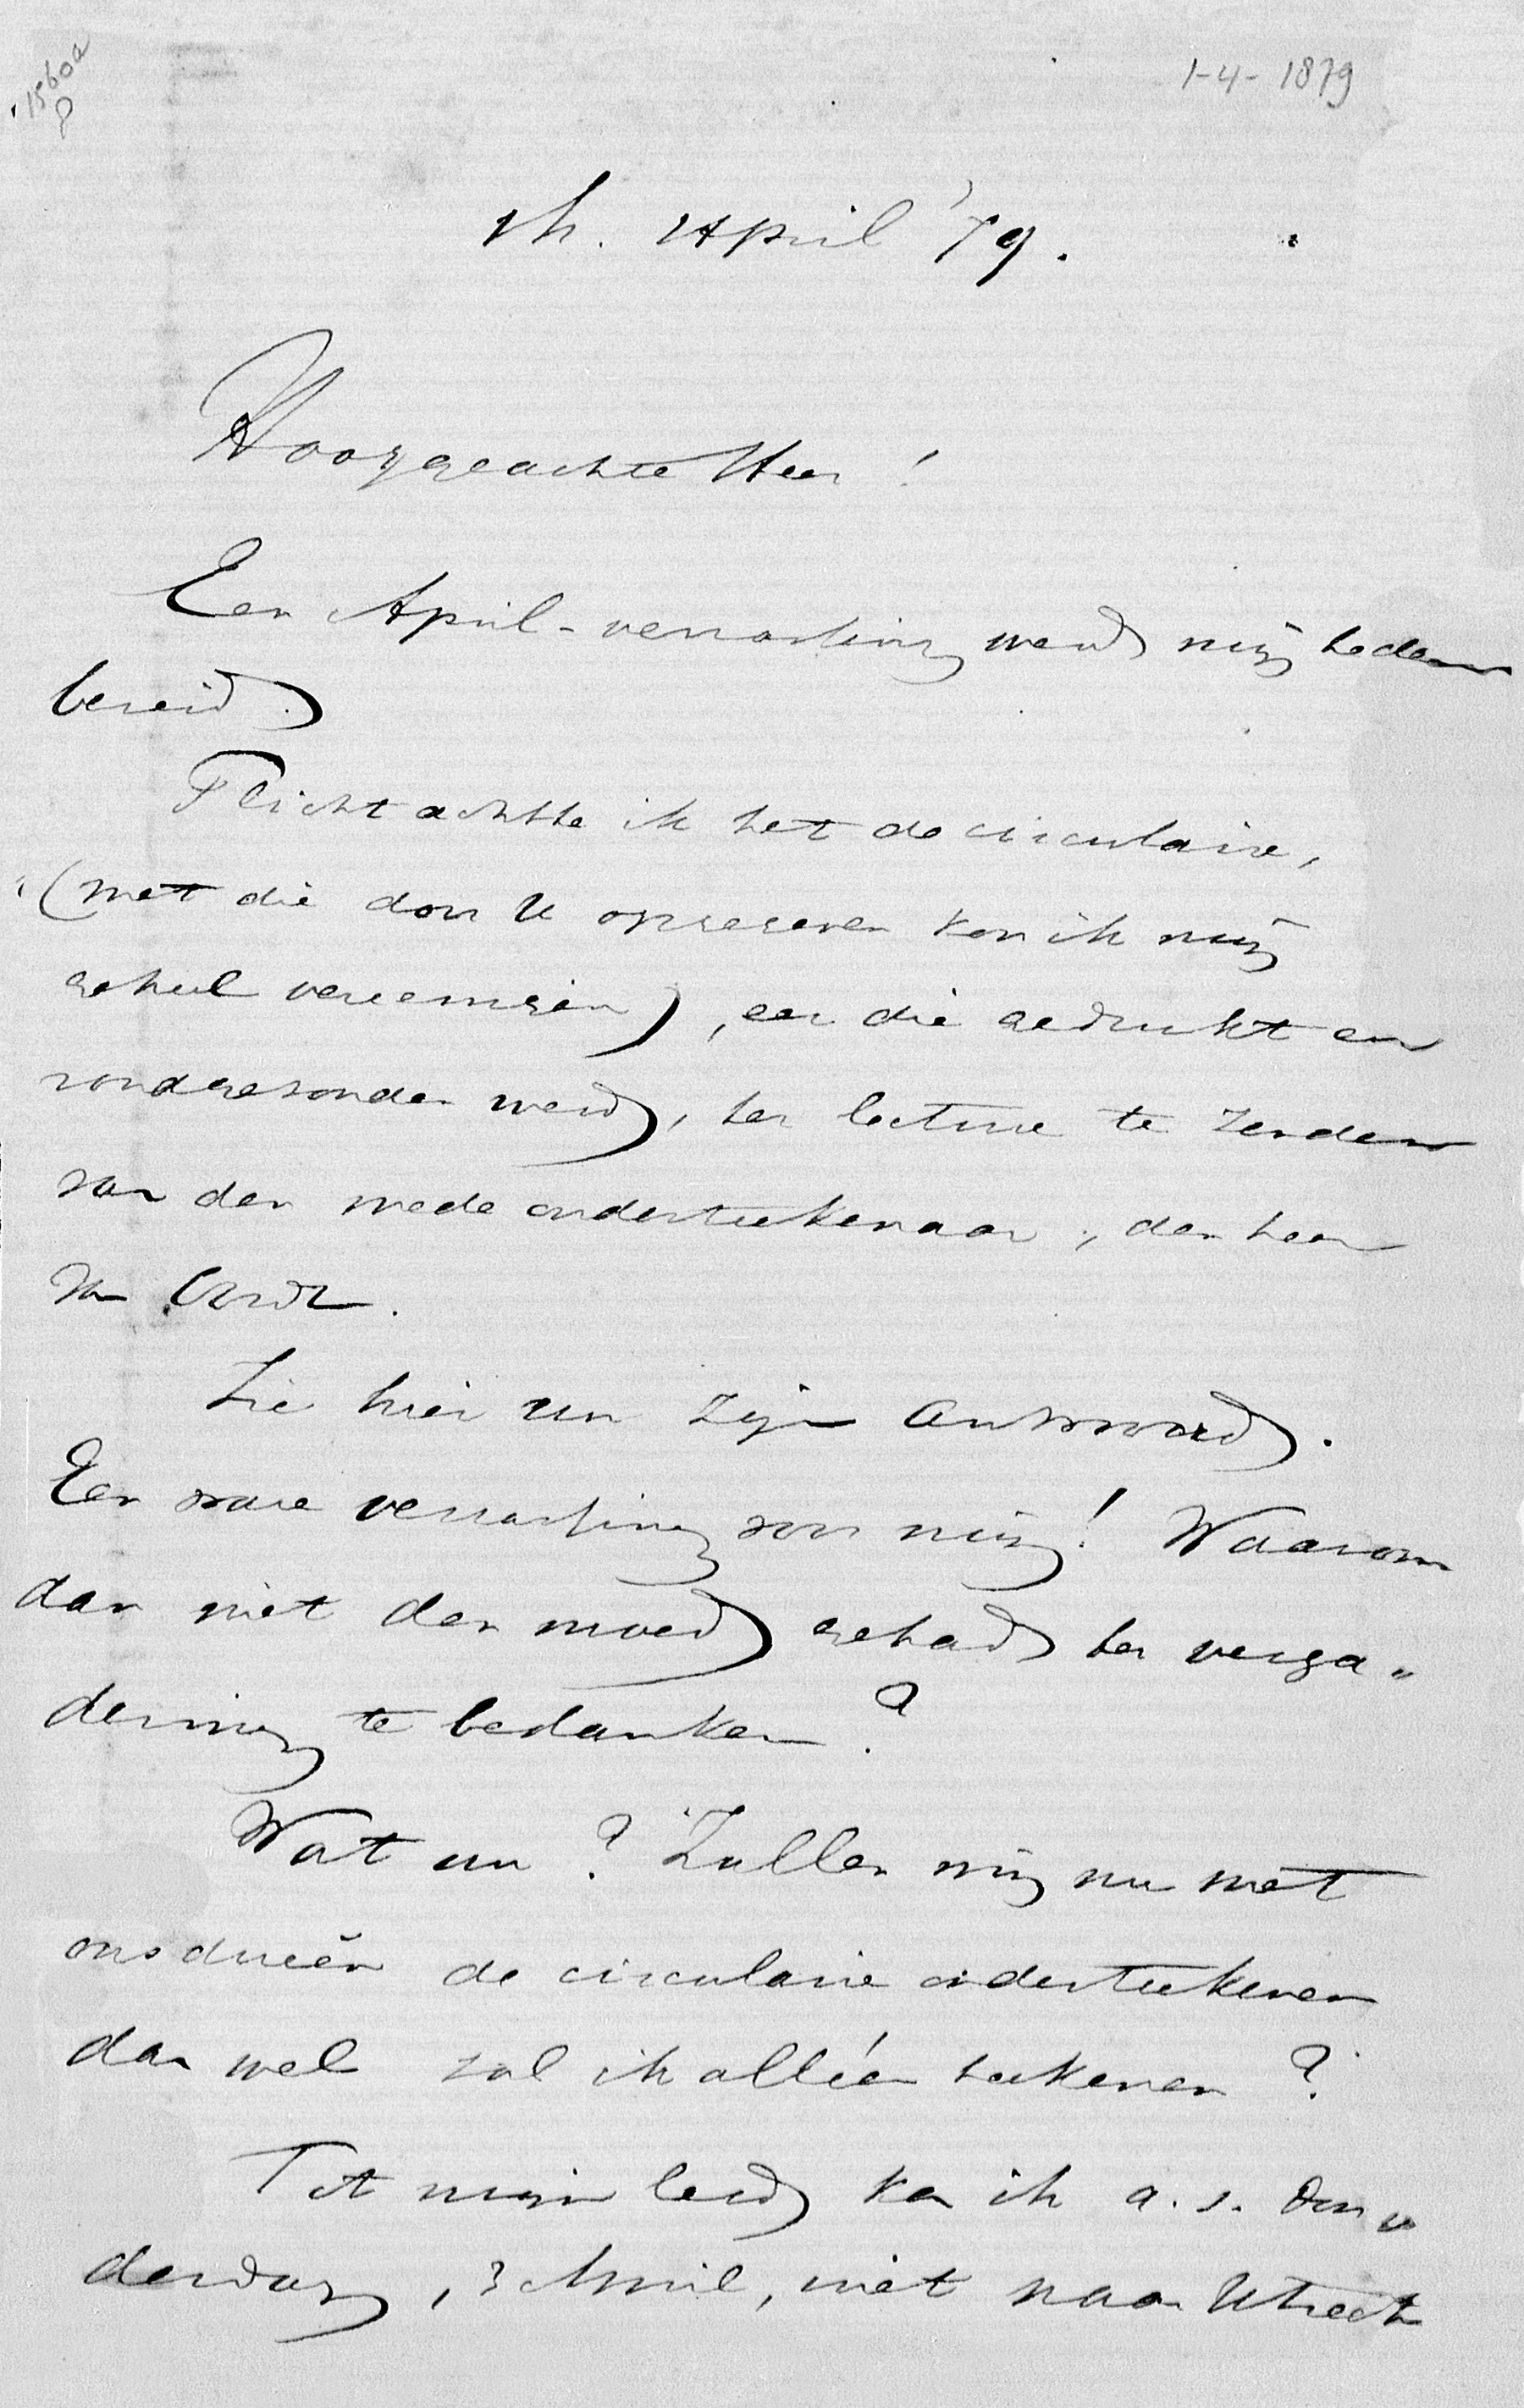 1560a
1-4-1879
1h. April '79.
Hooggeachte Heer!
Een April-verrassing werd mij heden
bereid.
Plicht achtte ik het de circulaire,
(met die door U opgegeven kon ik mij
geheel vereenigen), eer die gedrukt en
rondgezonden werd, ter lecture te zenden
aan den mede onderteekenaar, den heer
van Oordt.
Zie hier nu zijn antwoord.
Een ware verrassing voor mij! Waarom
dan niet den moed gehad ter verga„
dering te bedanken?
Wat nu? Zullen wij nu met
ons drieën de circulaire onderteekenen
dan wel zal ik alléén teekenen?
Tot mijn leed kan ik a.s. Don„
derdag, 3 April, niet naar Utrecht